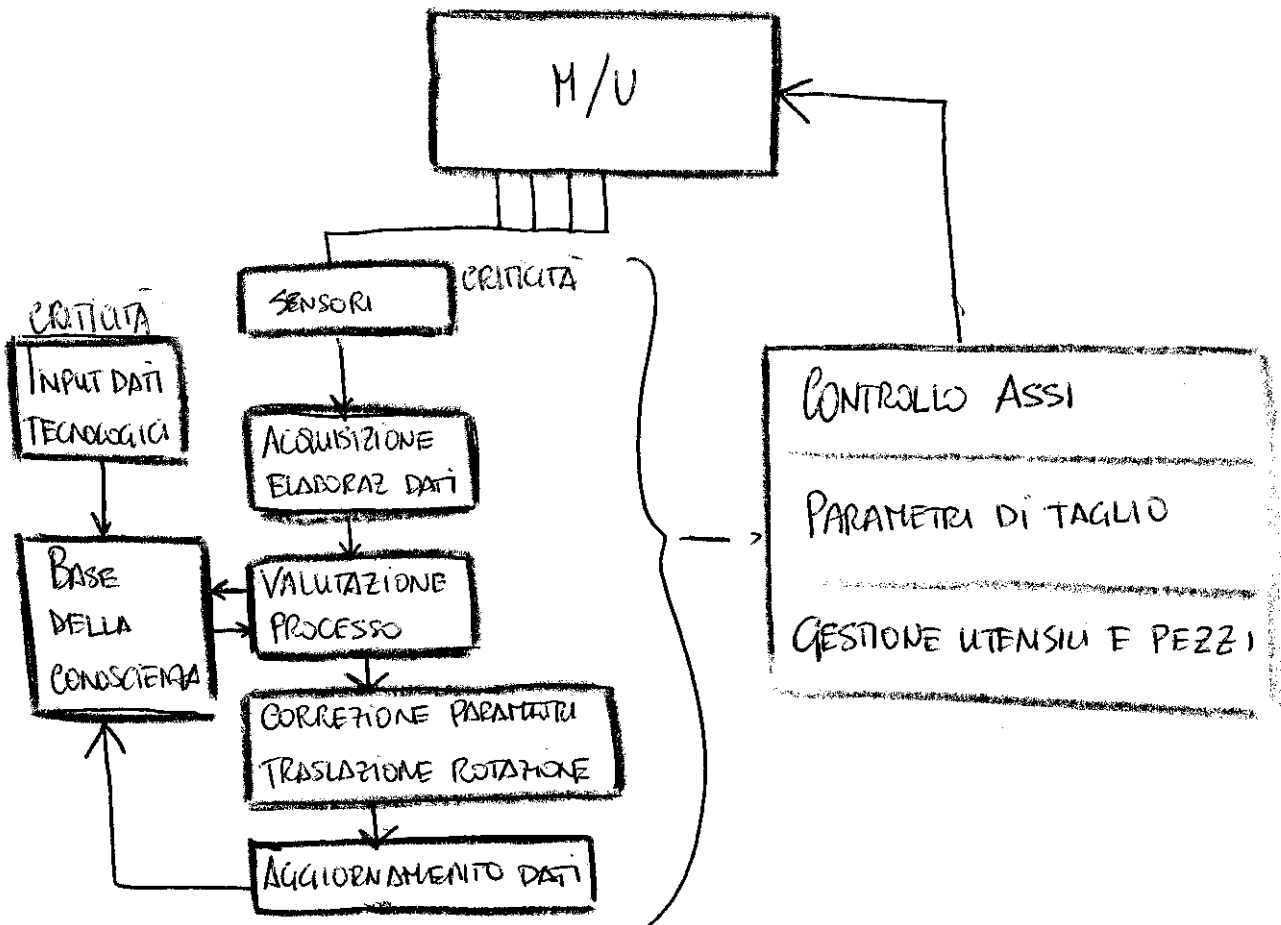 M/U
SENSORI
CRITICITÀ
CRITICITÀ
INPUT DATI
TECNOLOGICI
ACQUISIZIONE
ELABORAZ DATI
BASE
DELLA
CONOSCIENZA
VALUTAZIONE
PROCESSO
CORREZIONE PARAMETRI
TRASLAZIONE ROTAZIONE
AGGIORNAMENTO DATI
CONTROLLO ASSI
PARAMETRI DI TAGLIO
GESTIONE UTENSILI E PEZZI